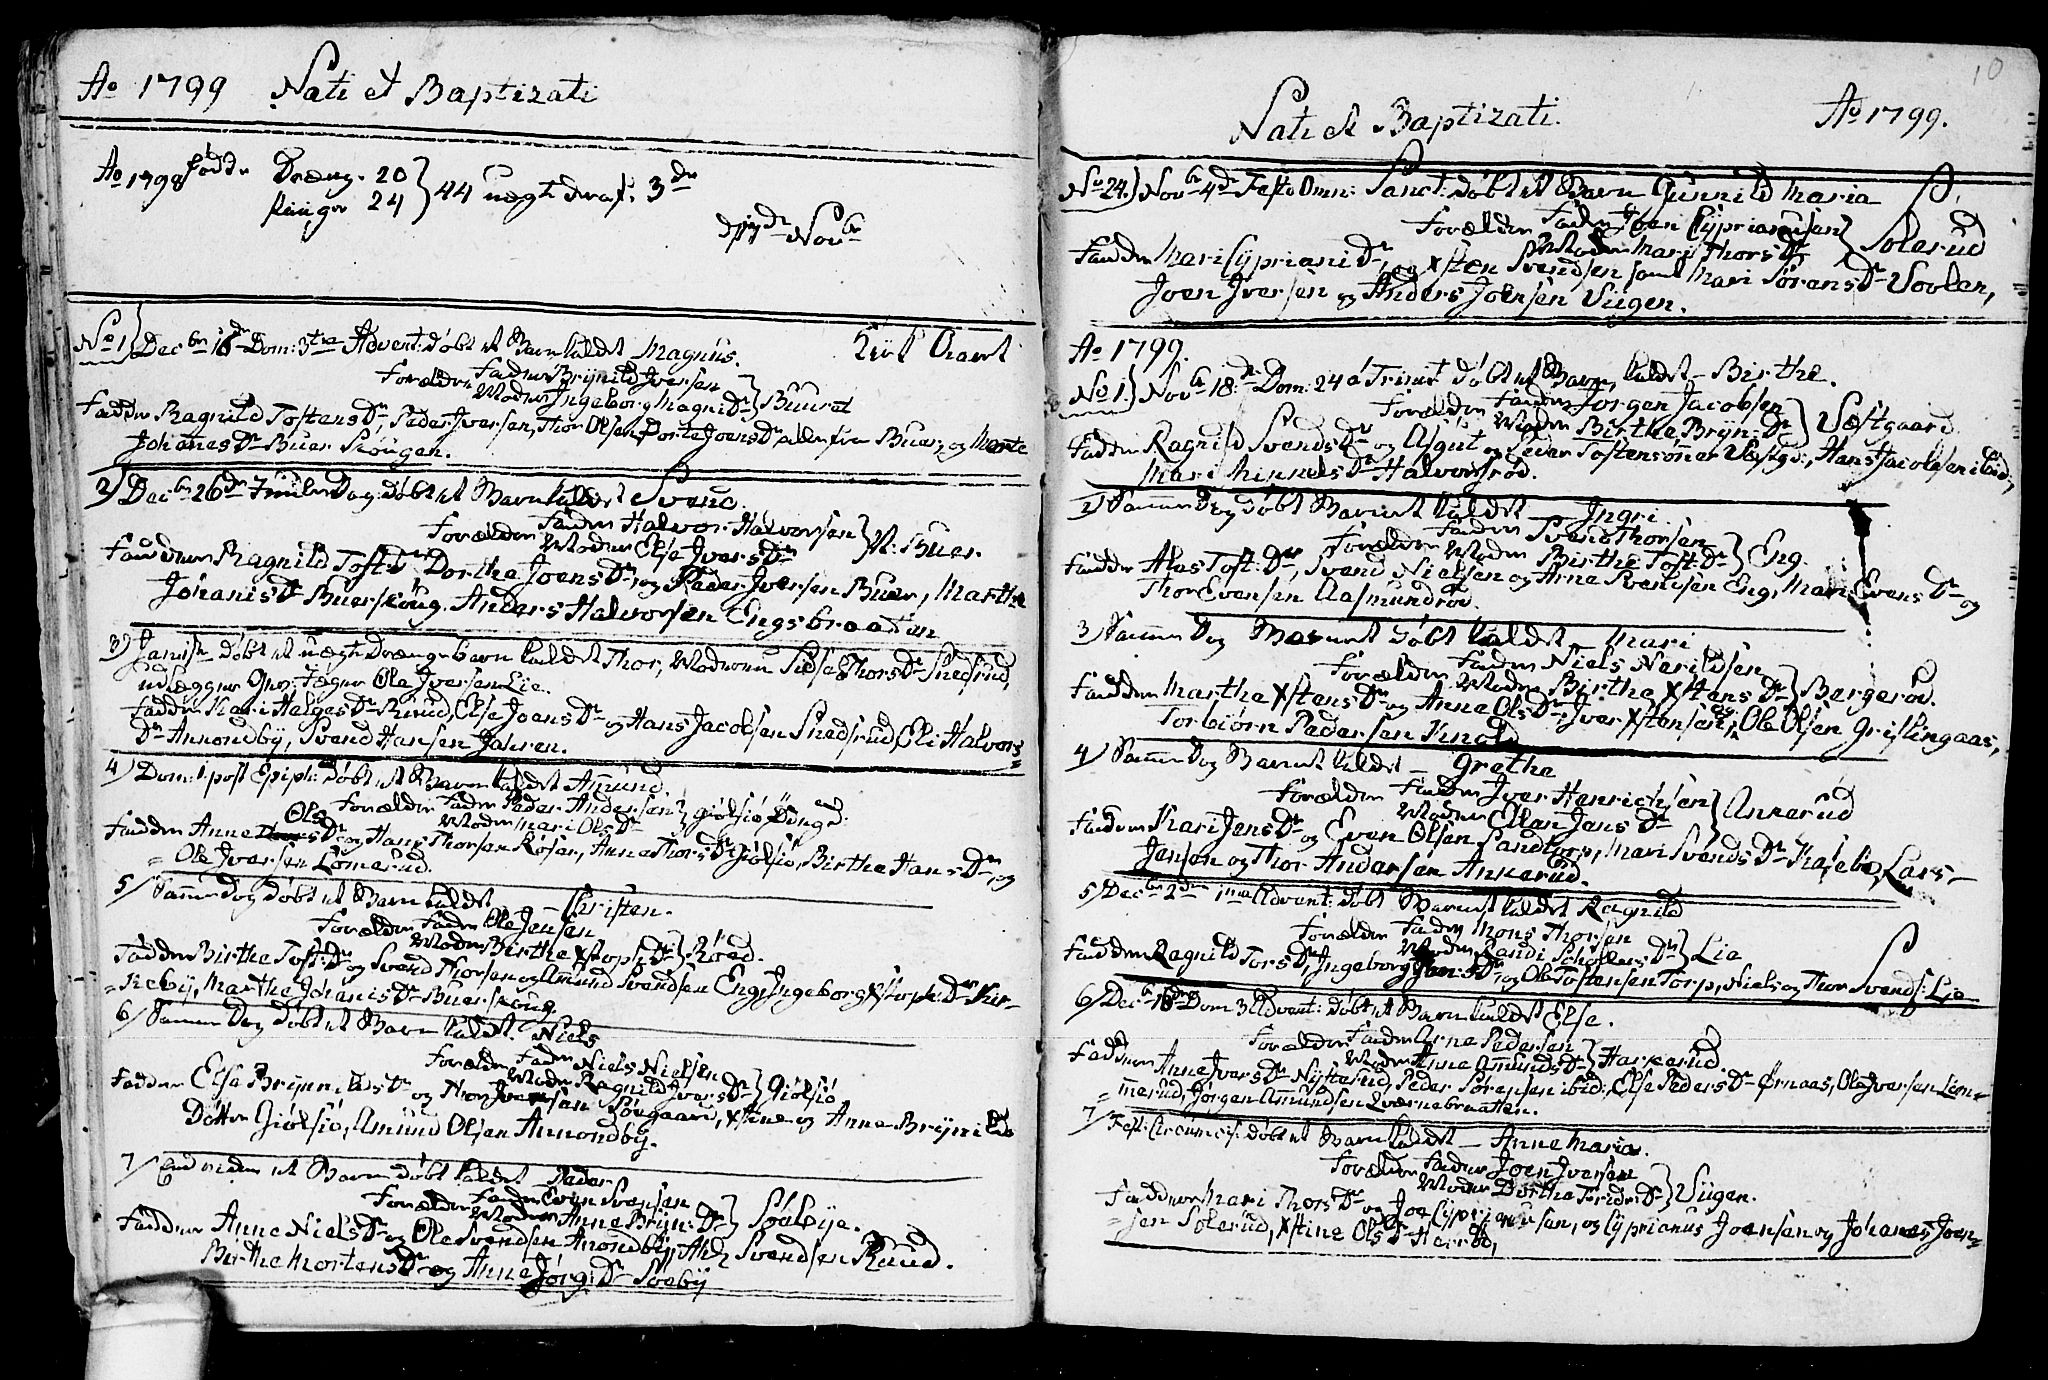 Ao 1799 Nati et Baptizati
Ao 1798 fødde Drænge 20
Piiger 24 } 44 uægte deraf 3de
Novbr
No 1 Decbr 16de Dom: 3tia Advent: døbt et Barn kaldet Magnus.
Forældre Fader Brynild Jversen
Moder Ingeborg Magni Dr } Buuret
Faddere Ragnild Tostens Dr, Peder Jversen, Thor Olsen, Dorte Joens Dr alle fra Buer, og Marte
Johanes Dr Buer Skougen.
2) Decbr 26de Juule Dag døbt et Barn kaldet Svend.
Forældre Fader Halvor Halvorsen
Moder Else Jvers Dr } N: Buer.
Faddere Ragnild Tost: Dr Dorthe Joens Dr og Peder Jversen Buer, Marthe
Johanis Dr Buerskoug, Anders Halvorsen Engsbraaten
3) døbt et uægte Drænge barn kaldet Thor, Moderen Sidse Thors Dr Snesrud,
udlægger Jæger Ole Jversen Lie.
Faddere Kari Helges Dr Ruud, Else Joens Dr og Hans Jacobsen Snesrud, Eli Halvors
Dr Annondby, Svend Hansen Jahren.
4) Dom: 1 post Epiph: døbt et Barn kaldet Amund.
Forældre Fader Peder Andersen
Moder Mari Ols Dr } Giølsiø
Faddere Anne Ols Dr og Hans Thorsen Røser, Anne Thors Dr Giølsiø, Birthe Hans Dr, og
Ole Jversen Lomerud.
5) Samme Dag døbt et Barn kaldet - Christen.
Forældre Fader Ole Jensen
Moder Birthe Xstoph: Dr } Røed.
Faddere Birthe Tost: Dr og Svend Thorsen og Amund Svendsen Eng, Ingeborg Xstoph: Dr Kir=
=kebÿ, Marthe Johanis Dr Buerskoug
6) Samme Dag døbt et Barn kaldet. Niels
Forældre Fader Niels Nielsen
Moder Ragnild Jvers Dr } Giølsiø
Faddere Else Brynilds Dr og Thor Jversen Sørgaard, Xstine og Anne Brynilds
Døttre Giølsiø, Amund Olsen Annondbÿ.
7) End videre et Barn døbt kaldet Peder.
Forældre Fader Even Svensen
Moder Anne Bryn: Dr } Soebÿe.
Faddere Anne Niels Dr og Ole Svendsen Anondbÿ, Svendsen Ruud.
Birthe Mortens Dr og Anne Jørg: Dr Soebÿ
10
Nati et Baptizati. Ao 1799.
No 24.) Novbr 4de Festo Omn: Sanct: døbt et Barn Gunnild Maria
Forældre Fader Joen Cyprianusen
Moder Mari Thors Dr } Solerud
Faddere Mari Cypriani Dr, og Xsten Svendsen samt Mari Sørens Dr Sovlen,
Joen Jversen og Anders Joensen Viigen.
Ao 1799.
No 1.) Novbr 18de Dom: 24 á Trinit døbt et Barn, kaldet - Birthe.
Forældre Fader Jorgen Jacobsen
Moder Birthe Bryn: Dr } Væstgaard.
Faddere Ragnild Svends Dr og Asgut og Peder Tostensøner Væstgd:, Hans Jacobsen ibid:,
Mari Dr Halvorsrød.
2) Samme Dag døbt Barnet kaldet Jngri.
Forældre Fader Svend Thorsen
Moder Birthe Tost: Dr } Eng.
Faddere Tost: Dr, Svend Nielsen og Arne Svendsen Eng, Mari Evens Dr og
Thor Evensen Aasmundrød.
3) Samme Dag Barnet døbt kaldet - Mari
Forældre Fader Niels Nerildsen
Moder Birthe Xstens Dr } Bergerød.
Faddere Marthe Xstens Dr og Anne Ols Dr, Jver Xstensen, og Ole Olsen Grislingaas,
Torbiørn Pedersen Knold
4) Samme Dag Barnet kaldet - Grethe
Forældre Fader Jver Henrichsen
Moder Ellen Jens Dr } Annerud
Faddere Kari Jens Dr og Even Olsen Sandtorp, Mari Svends Dr Lars
Jensen og Thor Andersen Ankerud.
5) Decbr 2den 1ma Advent: døbt Barnet kaldet Ragnild
Forældre Fader Mons Thorsen
Moder Randi Dr } Lie
Faddere Ragnild Tors Dr, Ingeborg Dr og Ole Tostensen Torp, Niels og Thor Svends: Lie
6) Decbr 16de Dom 3 Advent: døbt et Barn kaldet Else.
Forældre Fader Arne Pedersen
Moder Anne Amunds Dr } Harkerud
Faddere Anne Jvers Dr Nÿsterud, Peder Sørensen ibid:, Else Peders Dr Ørnaas, Ole Jversen Lom=
=merud, Jørgen Amundsen Qværnebraatten.
7) Fest: Circumcis: døbt et Barn kaldet - Anne Maria.
Forældre Fader Joen Jversen
Moder Dorthe Dr } Viigen.
Faddere Mari Thors Dr og Joe Cyprianusen, og Cyprianus Joensen og Johanes Joen=
=sen Solerud, Xstine Ols Dr